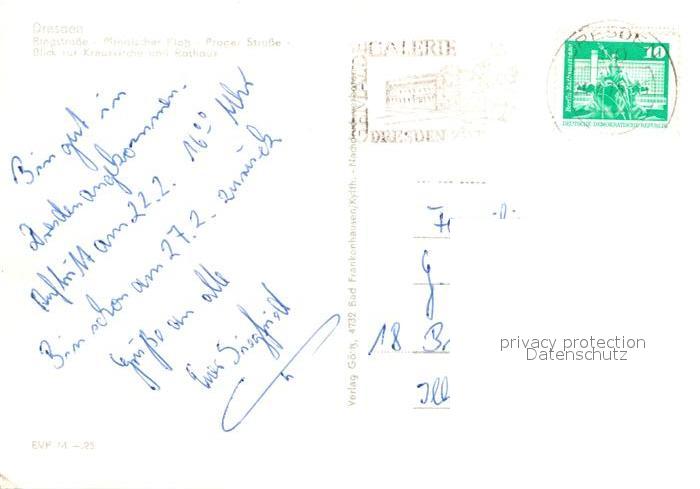 Dresden
Ringstraße - Pirnaischer Platz - Prager Straße -
Blick zur Kreuzkirche und Rathaus
Bin gut in
Dresden angekommen.
Auftritt am 22.2. 16⁰⁰ Uhr
Bin schon am 27.2. zurück
Grüße an alle
Euer Siegfried
EVP M -.25
Verlag Görtz, 4732 Bad Frankenhausen/Kyffh. -
GALERIE
DRESDEN
DRESDEN
10
Berlin
DEUTSCHE DEMOKRATISCHE REPUBLIK
18 Br
privacy protection
Datenschutz